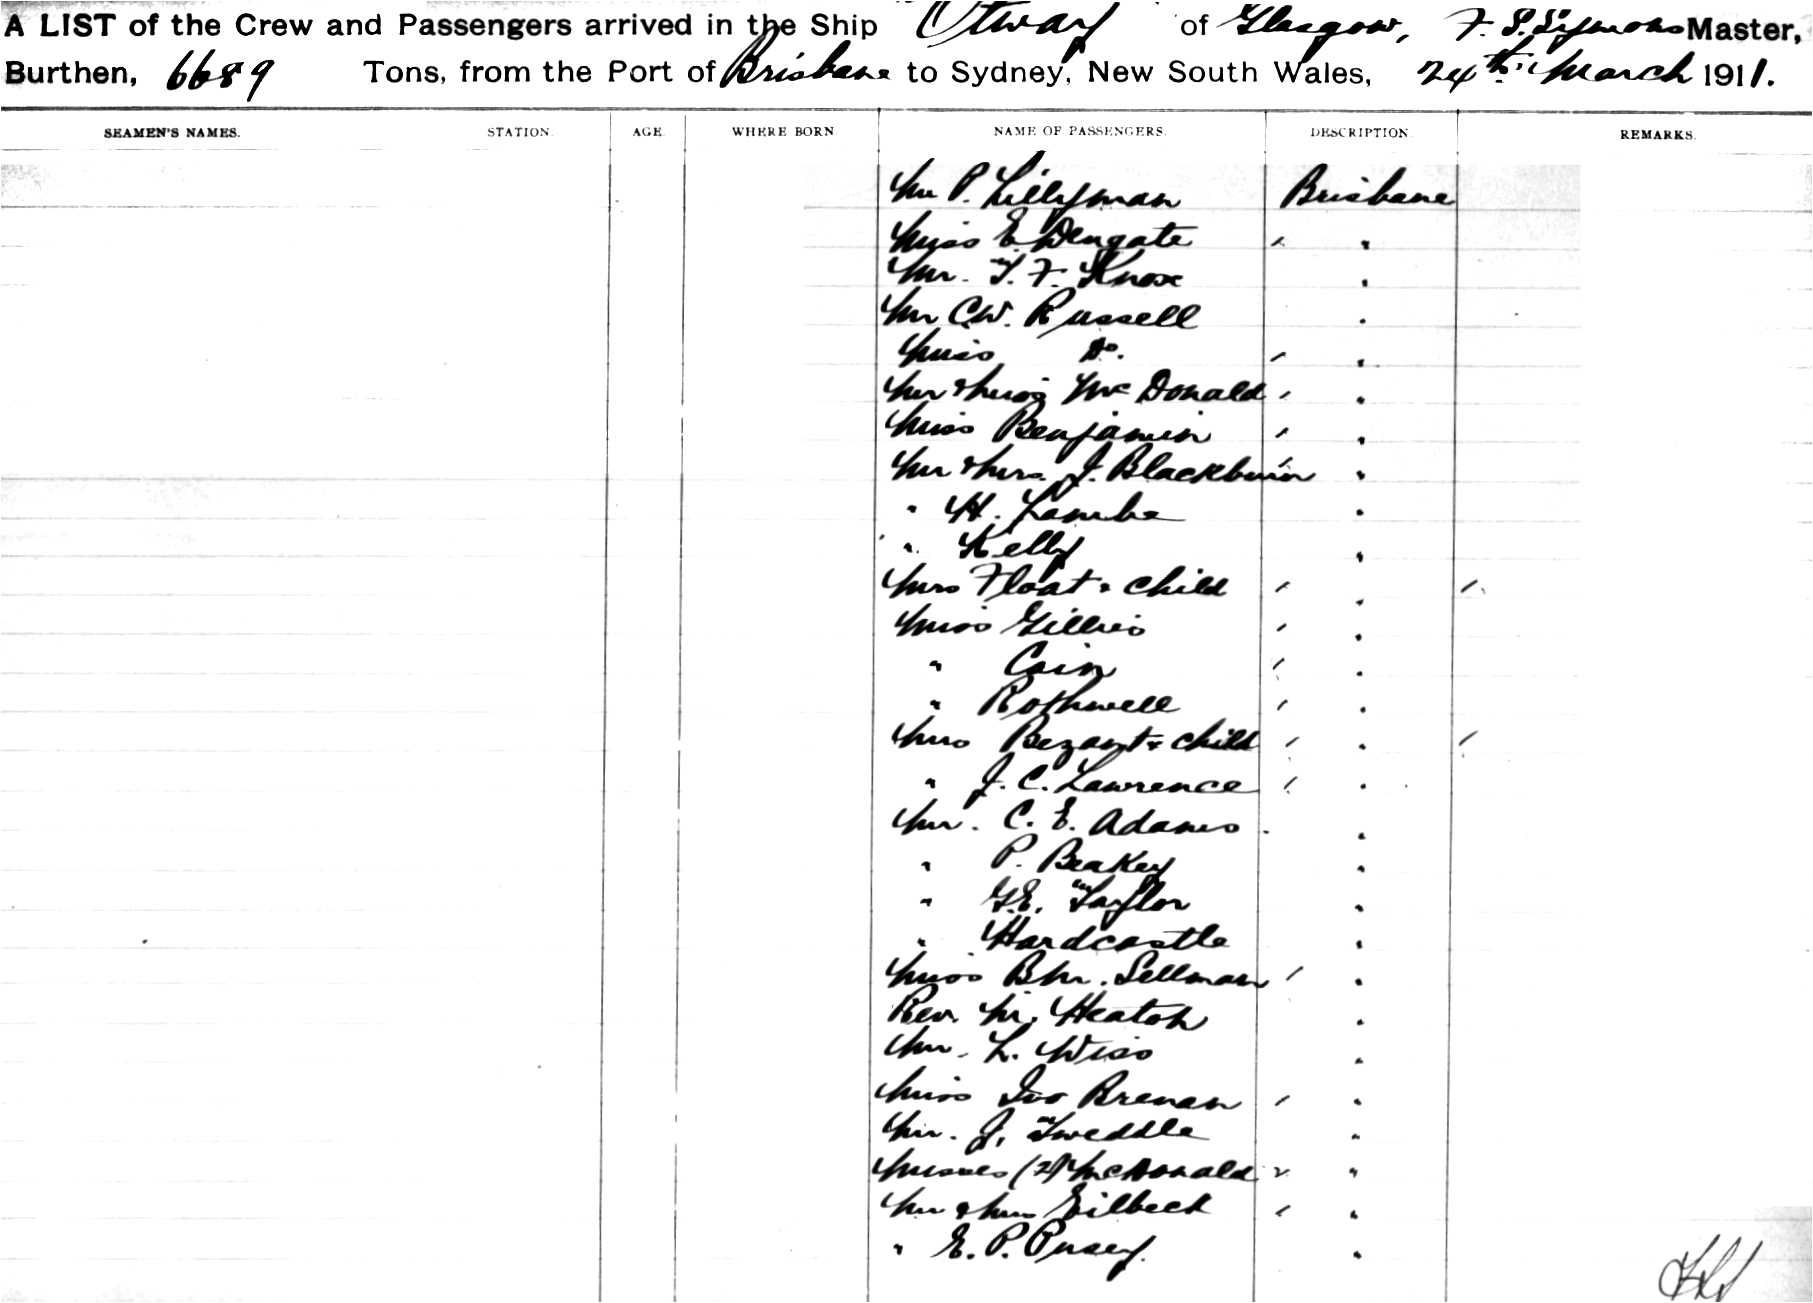 A LIST of the Crew and Passengers arrived in the Ship Otway of Glasgow, F. S. Symons Master,
Burthen, 6689 Tons, from the Port of Brisbane to Sydney, New South Wales, 24th March 1911.
SEAMEN'S NAMES. STATION. AGE. WHERE BORN NAME OF PASSENGERS. DESCRIPTION REMARKS.
Mr P. Lillyman Brisbane
Miss E. Wengate " "
Mr. T. F. Knox "
Mr C.W. Russell "
Miss Do. "
Mr & Miss McDonald "
Miss Benjamin "
Mr & Mrs. J. Blackburn "
" H. Lambe "
" Kelly "
Mrs Float & Child "
Miss Gillies "
" Cain "
" Rothwell "
Mrs Bezant & Child "
" J. C. Lawrence "
Mr. C. E. Adams "
" P. Beakey "
" G.E. Taylor "
" Hardcastle "
Miss B M. Sellman "
Rev. M. Heaton "
Mr. L. Wiss "
Miss Ivo Brenan "
Mr. J. Tweddle "
Misses (2) McDonald "
Mr & Mrs Eilbeck "
" E. P. Pusey. "